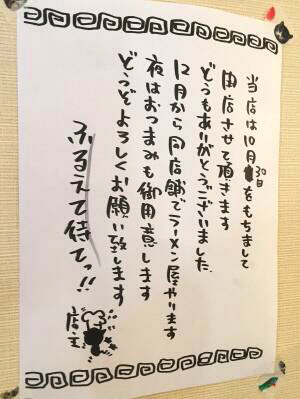 当店は10月30日をもちまして
閉店させて頂きます
どうもありがとうございました
12月から同店舗でラーメン屋やります
夜はおつまみも御用意します
どうぞよろしくお願い致します
ふるえて待てっ!!
店主